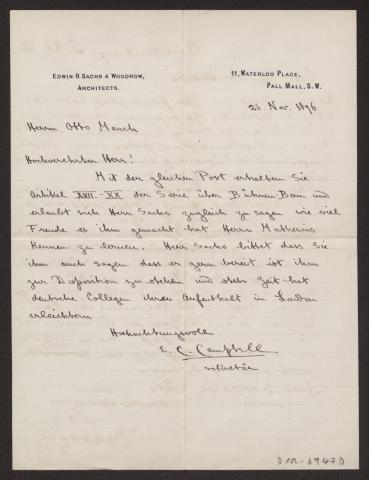 EDWIN O. SACHS & WOODROW,
ARCHITECTS.
11, WATERLOO PLACE,
PALL MALL, S.W.
25 Nov. 1896
Herrn Otto March
Hochverehrter Herr!
Mit der gleichen Post erhalten Sie
Artikel XVII-XX der Serie über Bühnen-Bau und
erlaubt sich Herr Sachs zugleich zu sagen wie viel
Freude es ihm gemacht hat Herrn Muthesius
kennen zu lernen. Herr Sachs bittet dass Sie
ihm auch sagen dass er gern bereit ist ihm
zur Disposition zu stehen und stets Zeit hat
deutsche Collegen ihren Aufenthalt in London
erleichtern
Hochachtungsvoll
E. C. Campbell
sekretär
D102-3947D